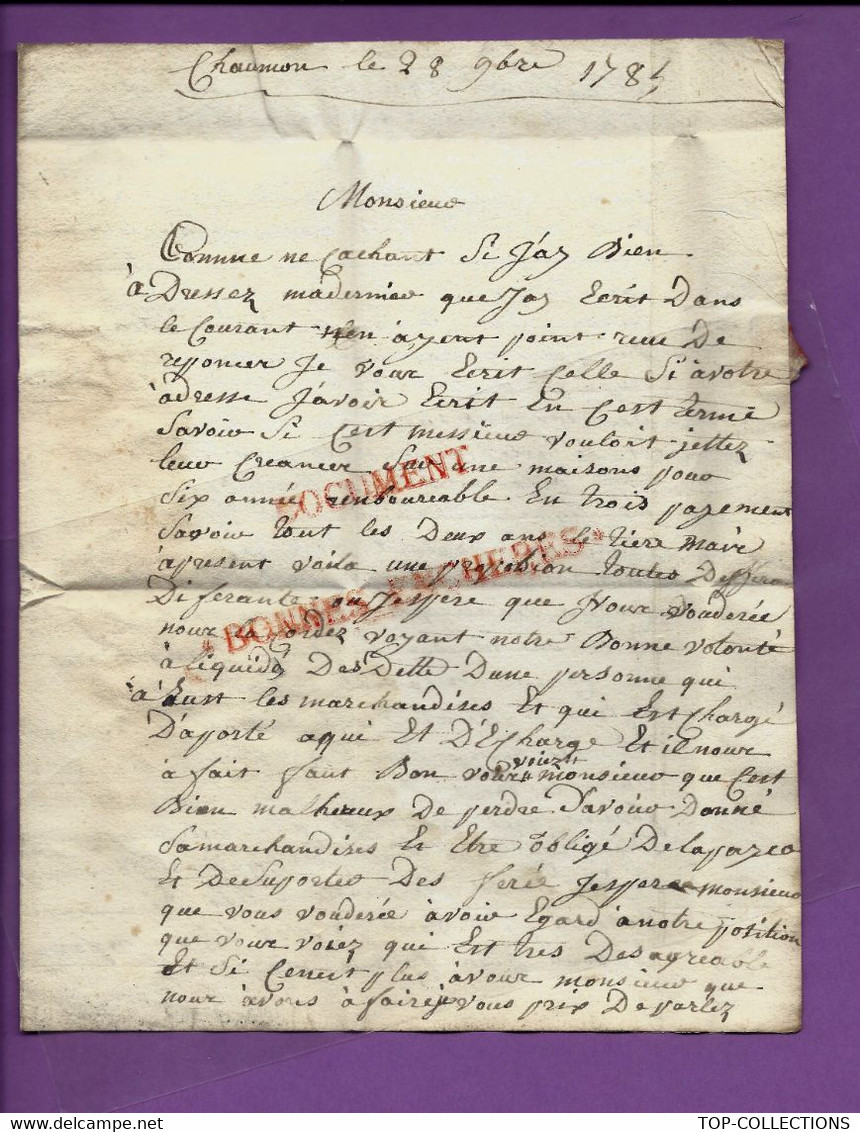 Chaumon le 28 9bre 178
Monsieur
Comme ne cachant Si J'ay Bien
à Dressez que Jay Ecrit Dans
le Courant nen àyent point reue De
reponcer Je vour Ecrit Celle Si àvotre
àdresse J'avoir Ecrit En C'est terme
Savoir Si C'est messieur vouloit jettez
leur Creancer Sur une maisons pour
Six année rembourcable En trois payement
Savoir tout les Deux ans le tiere Mair
àpresent voila une toutes
Diferante que Jespere que Nour vouderée
nour La Cordez voyant notre Bonne volonté
à liquidé Des Dette Dune personne qui
à Eust les marchandises Et qui Est Chargé
D'aporté aqui Et D'Echarge Et il nour
à fait faut Bon vour voiez monsieur que C'est
Bien malheaux De perdre D'avoir Donné
Samarchandises Et Etre obligé De lapayer
Et De Suporter Des Jespere monsieur
que vous vouderée àvoir Egard ànotre position
que vour voiez qui Est tres Desagreable
Et Si Cenest plus àvour monsieur que
nour àvons àfaire je vous prix De parlez
DOCUMENT
* BONNES ENCHERES *
TOP-COLLECTIONS